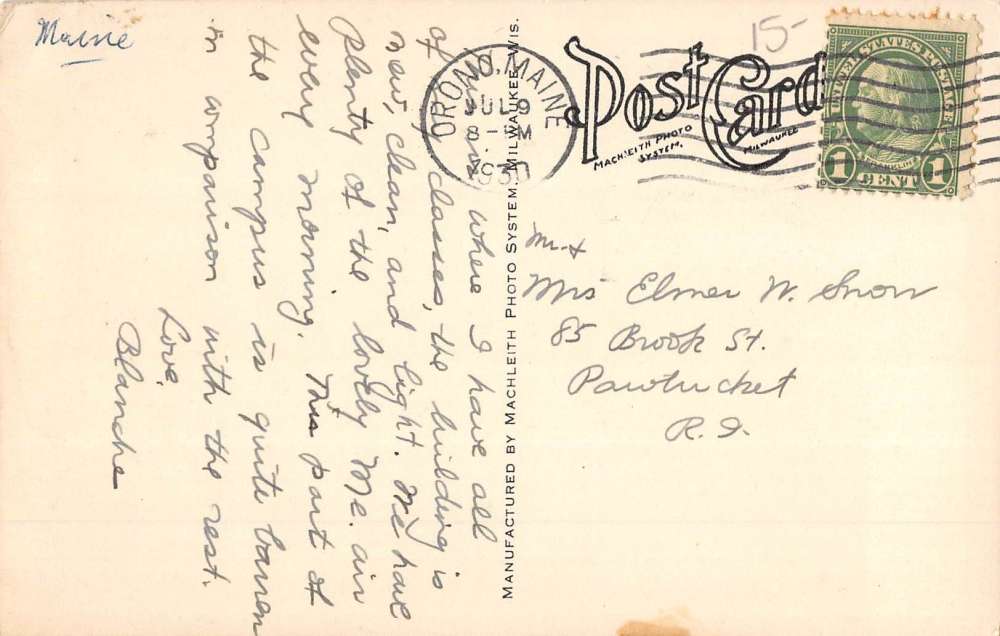 Maine
15-
ORONO, MAINE
JUL 9
8- M
1930
Post Card
MACHLEITH PHOTO
SYSTEM.
MILWAUKEE
UNITED STATES POSTAGE
FRANKLIN
1 CENT 1
where I have all
of my classes, the building is
new, clean, and light. We have
plenty of the lovely Me. air
every morning. This part of
the campus is quite barren
in comparison with the rest.
Love,
Blanche
MANUFACTURED BY MACHLEITH PHOTO SYSTEM, MILWAUKEE, WIS.
Mr. +
Mrs Elmer W. Snow
85 Brook St.
Pawtucket
R.I.